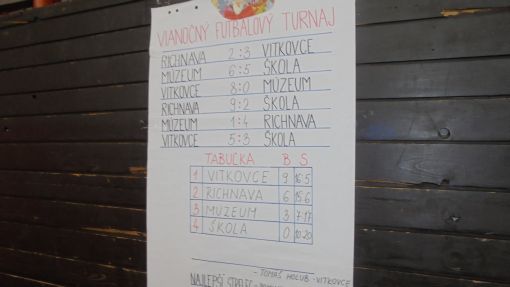 VIANOČNÝ FUTBALOVÝ TURNAJ
RICHNAVA 2:3 VITKOVCE
MÚZEUM 6:5 ŠKOLA
VITKOVCE 8:0 MÚZEUM
RICHNAVA 9:2 ŠKOLA
MÚZEUM 1:4 RICHNAVA
VITKOVCE 5:3 ŠKOLA
TABUĽKA B S
1 VITKOVCE 9 16:5
2 RICHNAVA 6 15:6
3 MÚZEUM 3 7:17
4 ŠKOLA 0 10:20
- TOMÁŠ HOLUB - VITKOVCE
NAJLEPŠÍ STRELEC -